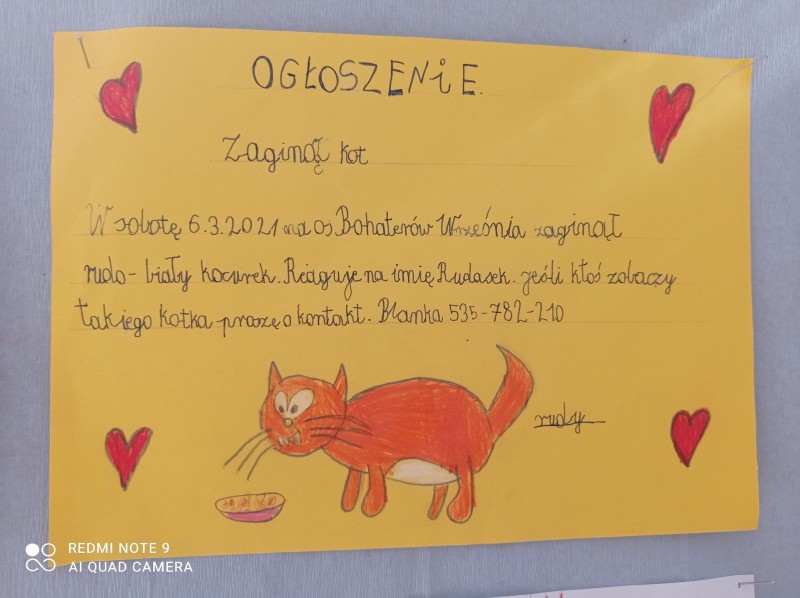 OGŁOSZENiE.
Zaginął kot
W sobotę 6.3.2021 na os Bohaterów Września zaginął
rudo-biały kocurek. Reaguje na imię Rudasek. jeśli ktoś zobaczy
takiego kotka proszę o kontakt. Blanka 535-782-210
rudy
REDMI NOTE 9
AI QUAD CAMERA